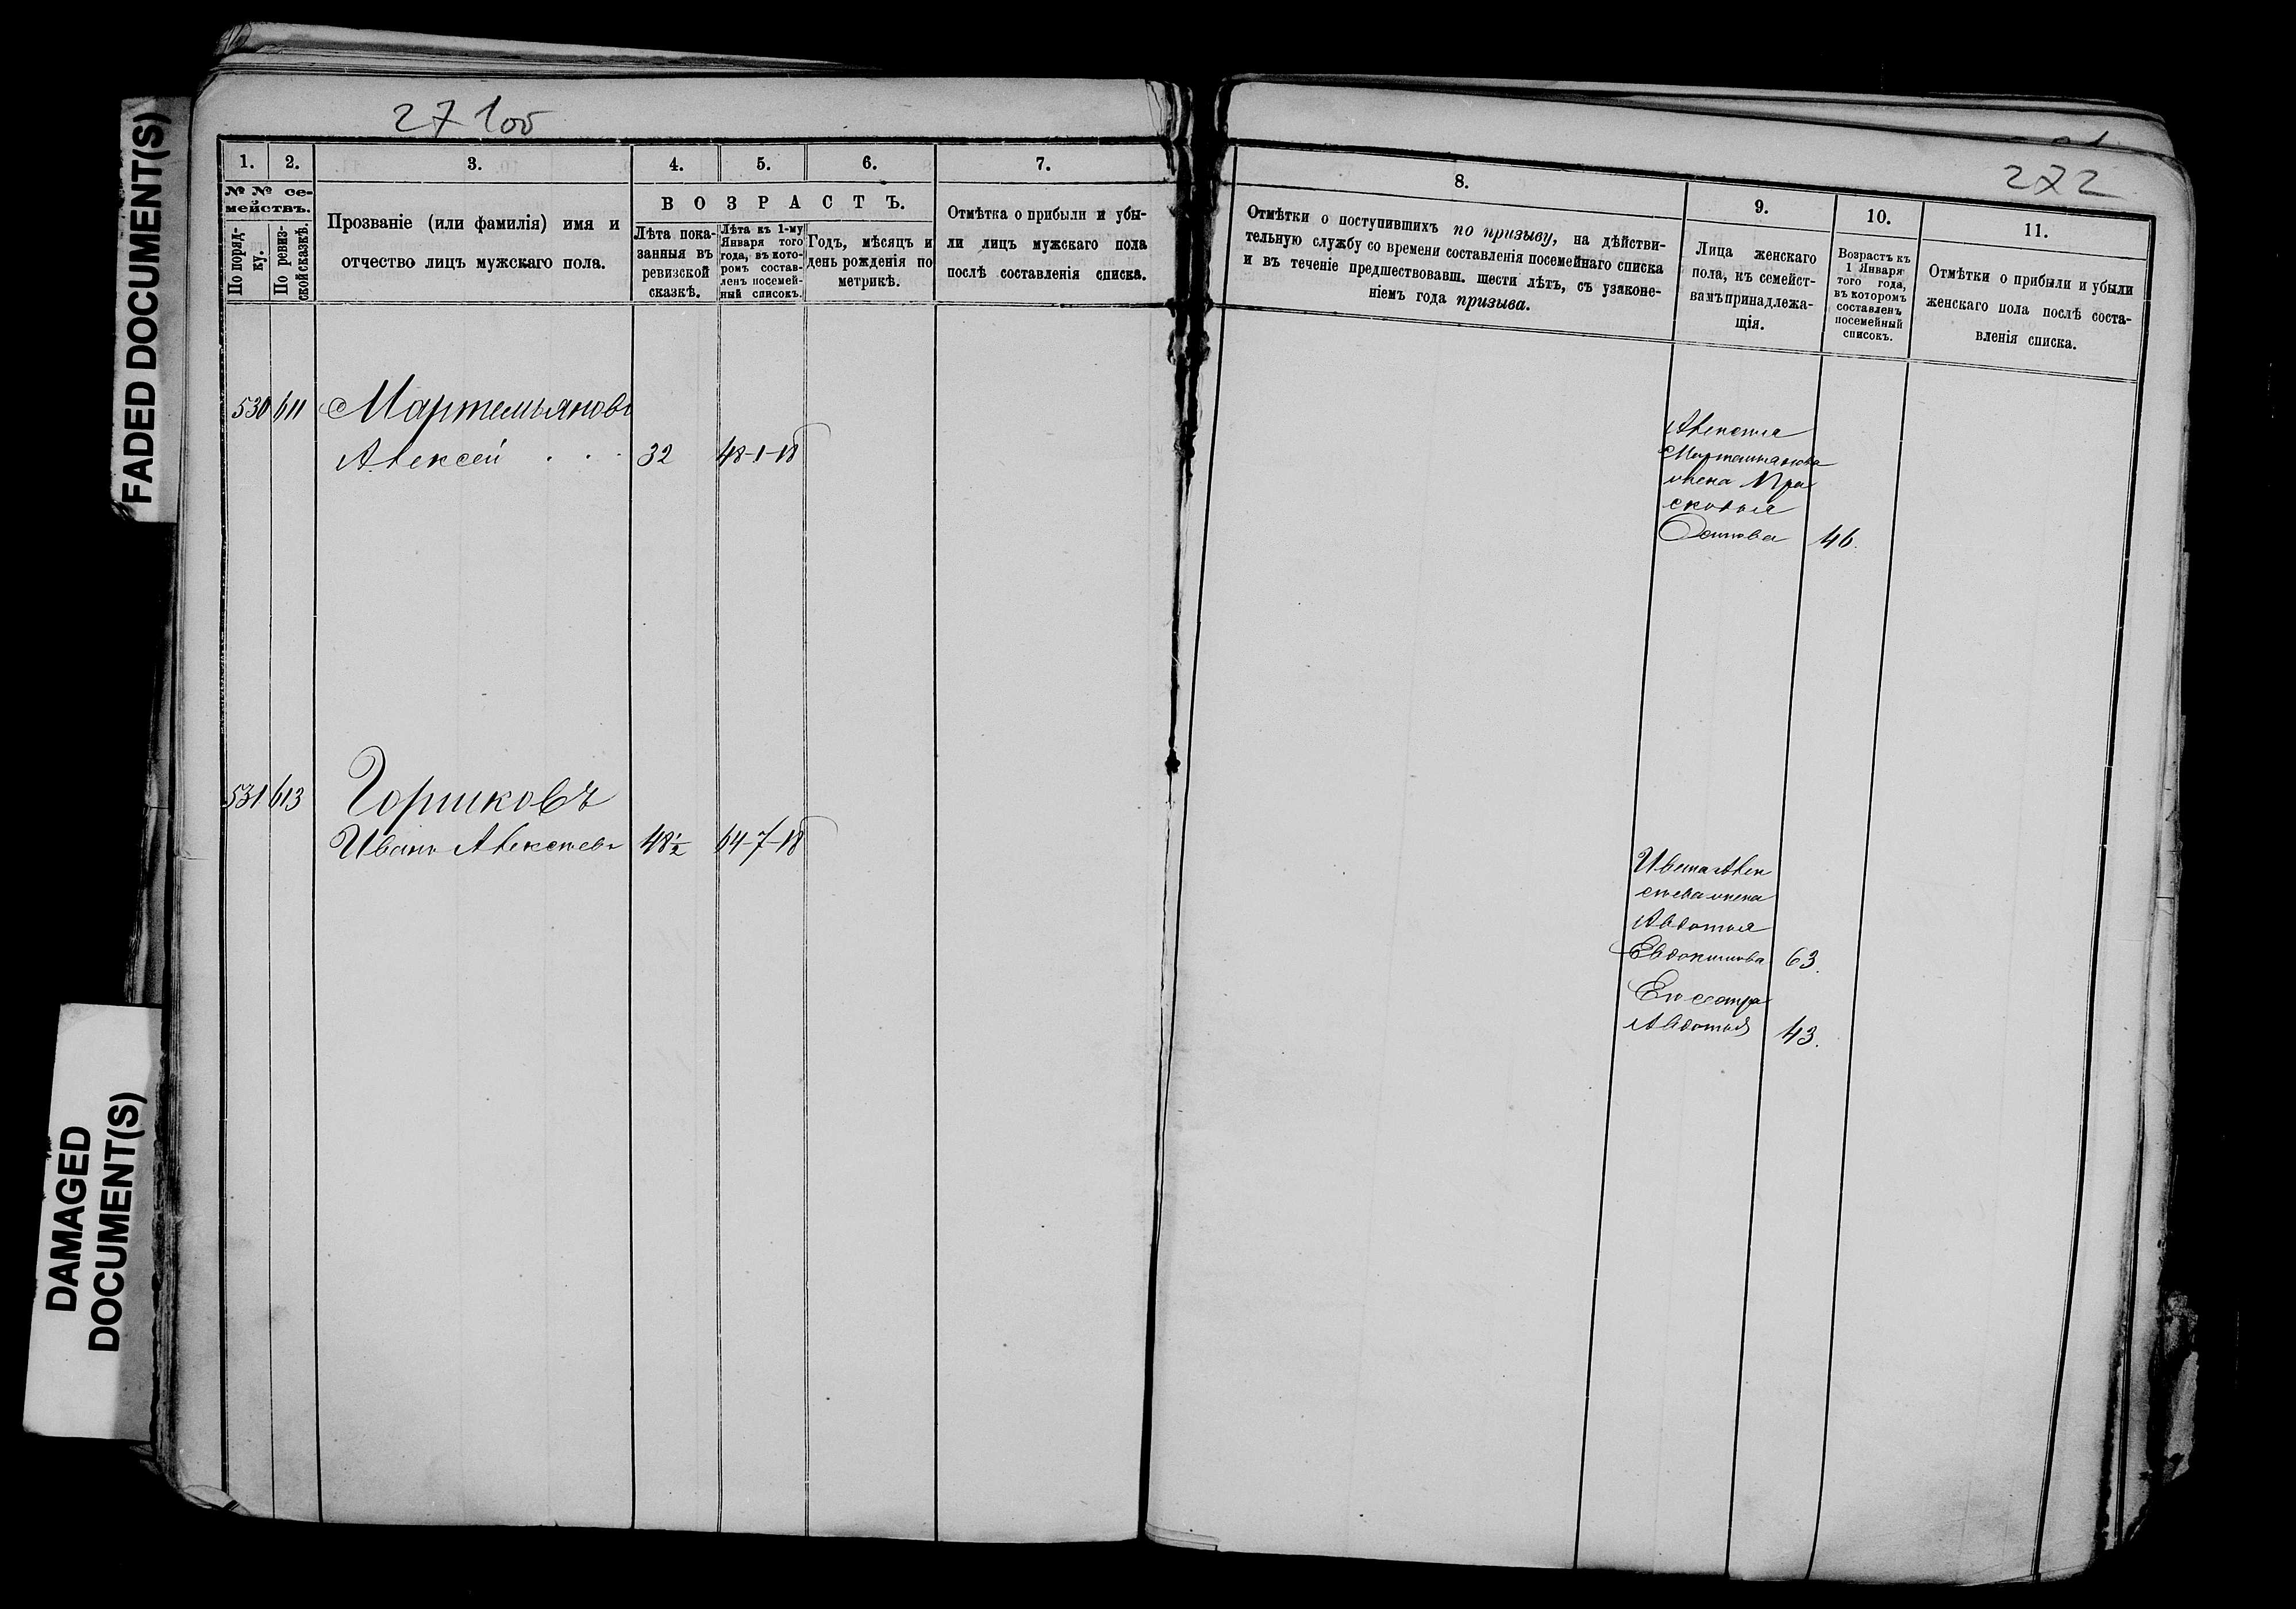 FADED DOCUMENT(S)
DAMAGED
DOCUMENT(S)
27 1об
1.
2.
3.
4.
5.
6.
7.
№ № се-
мействъ.
По поряд-
ку.
По ревиз-
ской сказкѣ.
Прозваніе (или фамилія) имя и
отчество лицъ мужскаго пола.
ВОЗРАСТЪ.
Лѣта пока-
занныя въ
ревизской
сказкѣ.
Лѣта къ 1-му
Января того
года, въ кото-
ромъ состав-
ленъ посемей-
ный списокъ.
Годъ, мѣсяцъ и
день рожденія по
метрикѣ.
Отмѣтка о прибыли и убы-
ли лицъ мужскаго пола
послѣ составленія списка.
530 611 Мартемьяновъ
Алексѣй . . . 32 48-1-18
531 613 Горшковъ
Иванъ Алексѣевъ 48½ 64-7-18
272
8.
9.
10.
11.
Отмѣтки о поступившихъ по призыву, на дѣйстви-
тельную службу со времени составленія посемейнаго списка
и въ теченіе предшествовавш. шести лѣтъ, съ узаконе-
ніемъ года призыва.
Лица женскаго
пола, къ семейст-
вамъ принадлежа-
щія.
Возрастъ къ
1 Января
того года,
въ которомъ
составленъ
посемейный
списокъ.
Отмѣтки о прибыли и убыли
женскаго пола послѣ соста-
вленія списка.
Алексѣя
Мартемьянова
жена Пра
сковья
Осипова 46.
Ивана Алек
сѣева жена
Авдотья
Евдокимова 63.
Его сестра
Авдотья 43.